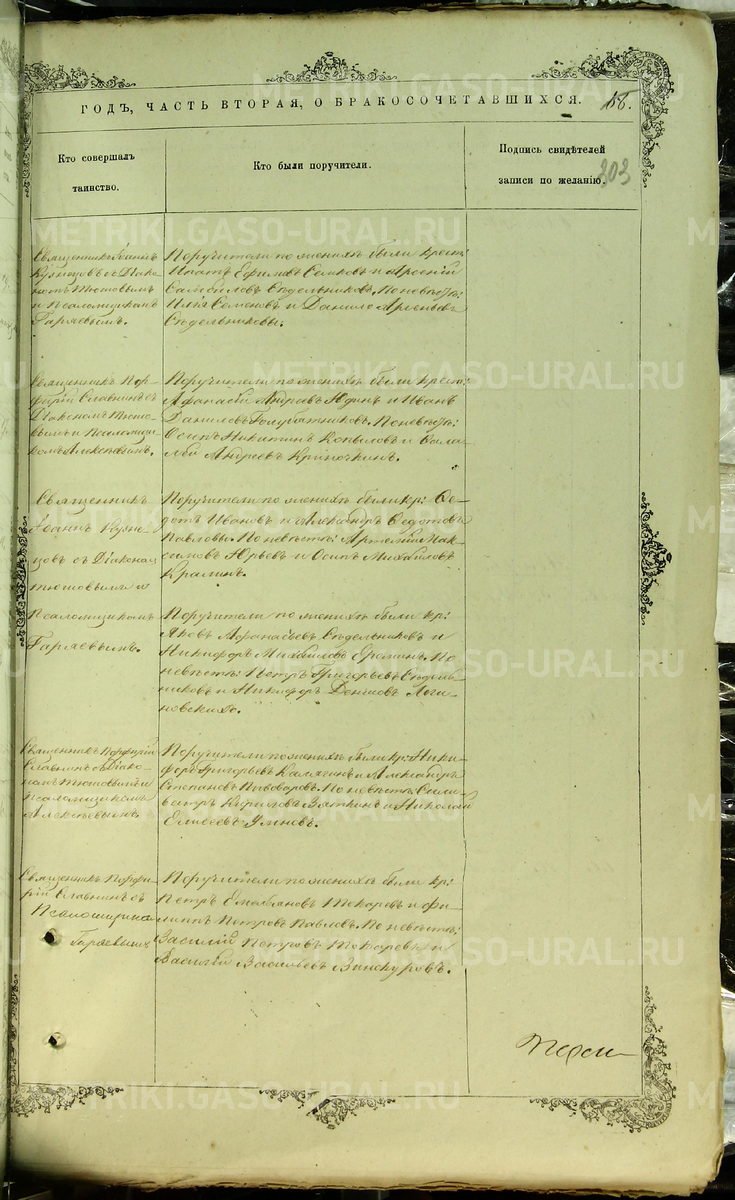 ГОДЪ, ЧАСТЬ ВТОРАЯ, О БРАКОСОЧЕТАВШИХСЯ.
203
Кто совершалъ
таинство.
Кто были поручители.
Подпись свидѣтелей
записи по желанію.
Священникъ Іоаннъ
Кузнецовъ съ Діако
номъ Тютовымъ
и Псаломщикомъ
Гаряевымъ.
Поручители по женихѣ были крест:
Ипатъ Ефимовъ и Арсеній
Самойловъ Сѣдельниковъ. По невѣстѣ:
Илья Семеновъ и Данило Арсеньевъ
Сѣдельниковы.
Священникъ Пор-
фирій Славнинъ съ
Діакономъ Тюто-
вымъ и Псаломщи
комъ Алексѣевымъ.
Поручители по женихѣ были крест:
Афанасій Андреевъ Юдинъ и Иванъ
Даниловъ Голубятниковъ. По невѣстѣ:
Осипъ Никитинъ Копыловъ и
Андреевъ
Священникъ
Іоаннъ Кузне
цовъ съ Діакона
Тютовымъ и
Псаломщикомъ
Гаряевымъ.
Поручители по женихѣ были кр: Ѳе-
дотъ Ивановъ и Александръ Ѳедотовъ
Павловы. По невѣстѣ: Артемій Мак-
симовъ Юрьевъ и Осипъ Михайловъ
Кралинъ.
Поручители по женихѣ были кр:
Яковъ Афанасьевъ Сѣдельниковъ и
Никифоръ Михайловъ По
невѣстѣ: Петръ Григорьевъ Сѣдель-
никовъ и Никифоръ Денисовъ Логи-
новскихъ.
Священникъ Порфирій
Славнинъ съ Діако-
номъ Тютовымъ и
Псаломщикомъ
Алексѣевымъ.
Поручители по женихѣ были кр: Ники-
форъ Григорьевъ Калягинъ и Александръ
Степановъ Пивоваровъ. По невѣстѣ: Сили-
верстръ Кириловъ Вяткинъ и Николай
Елисеевъ Умновъ.
Священникъ Порфи-
рій Славнинъ съ
Псаломщикомъ
Гаряевымъ
Поручители по женихѣ были кр:
Петръ Емельяновъ Токаревъ и Фи-
липпъ Петровъ Павловъ. По невѣстѣ:
Василій Петровъ Токаревъ и
Василій Васильевъ Винокуровъ.
METRIKI.GASO-URAL.RU